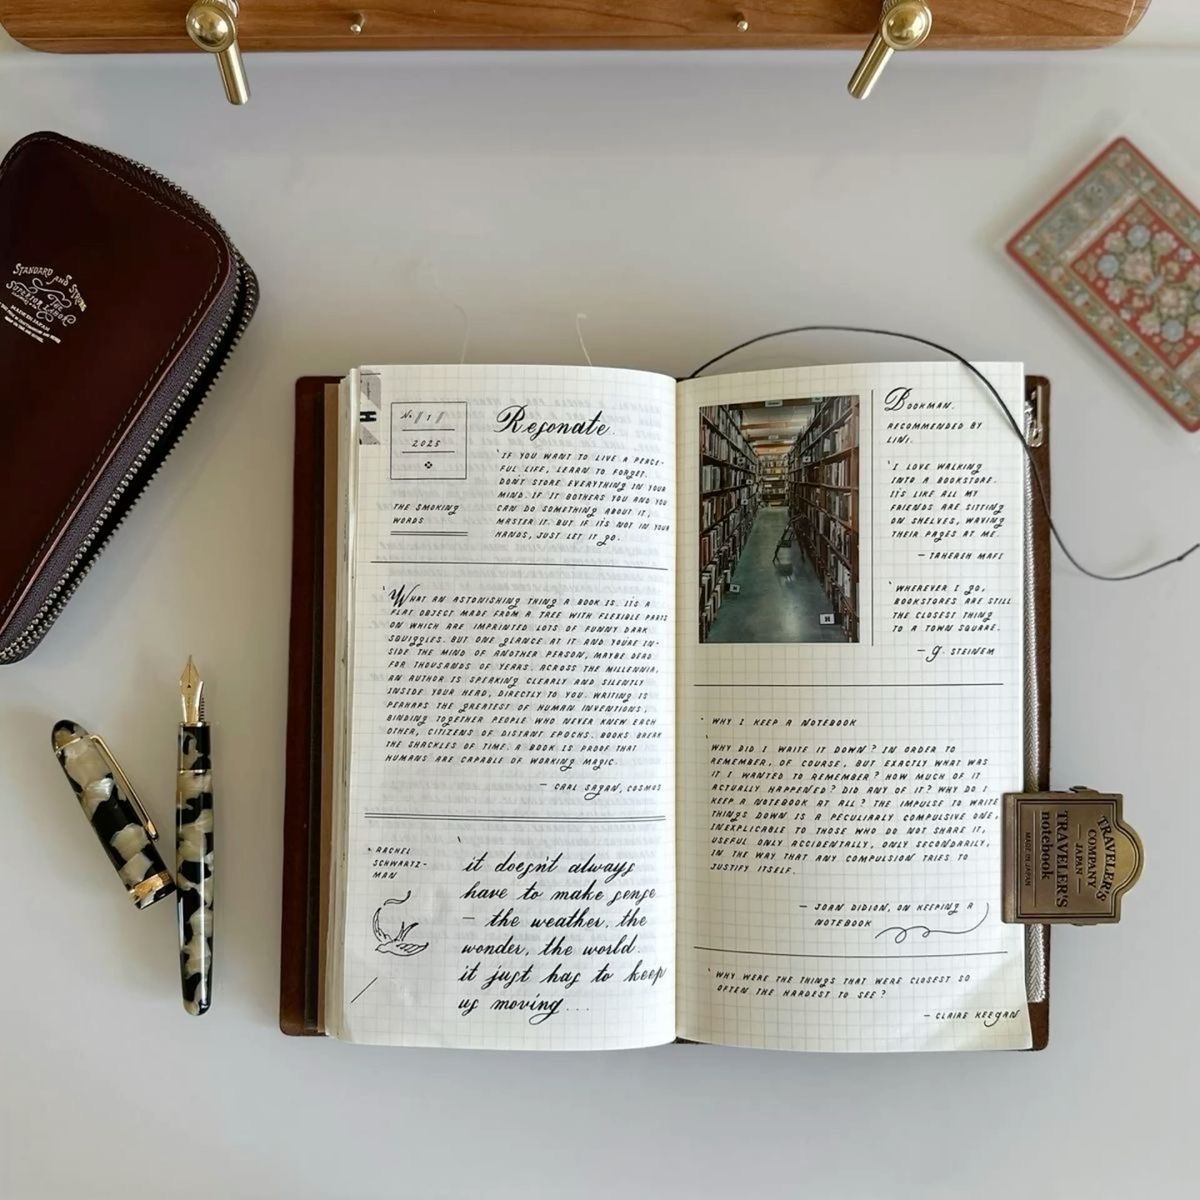 STANDARD AND STRANGE
THE
SUPERIOR LABOR
MADE IN JAPAN
H
No. 1
2025
THE SMOKING
WORDS
Resonate.
'IF YOU WANT TO LIVE A PEACE-
FUL LIFE, LEARN TO FORGET.
DON'T STORE EVERYTHING IN YOUR
MIND. IF IT BOTHERS YOU AND YOU
CAN DO SOMETHING ABOUT IT,
MASTER IT. BUT IF IT'S NOT IN YOUR
HANDS, JUST LET IT GO.
'WHAT AN ASTONISHING THING A BOOK IS. IT'S A
FLAT OBJECT MADE FROM A TREE WITH FLEXIBLE PARTS
ON WHICH ARE IMPRINTED LOTS OF FUNNY DARK
SQUIGGLES. BUT ONE GLANCE AT IT AND YOU'RE IN-
SIDE THE MIND OF ANOTHER PERSON, MAYBE DEAD
FOR THOUSANDS OF YEARS. ACROSS THE MILLENNIA,
AN AUTHOR IS SPEAKING CLEARLY AND SILENTLY
INSIDE YOUR HEAD, DIRECTLY TO YOU. WRITING IS
PERHAPS THE GREATEST OF HUMAN INVENTIONS,
BINDING TOGETHER PEOPLE WHO NEVER KNEW EACH
OTHER, CITIZENS OF DISTANT EPOCHS. BOOKS BREAK
THE SHACKLES OF TIME. A BOOK IS PROOF THAT
HUMANS ARE CAPABLE OF WORKING MAGIC.
— CARL SAGAN, COSMOS
RACHEL
SCHWARTZ-
MAN
'it doesn't always
have to make sense
— the weather, the
wonder, the world.
it just has to keep
us moving...
H
BOOKMAN.
RECOMMENDED BY
LINI.
'I LOVE WALKING
INTO A BOOKSTORE.
IT'S LIKE ALL MY
FRIENDS ARE SITTING
ON SHELVES, WAVING
THEIR PAGES AT ME.
— TAHEREH MAFI
'WHEREVER I GO,
BOOKSTORES ARE STILL
THE CLOSEST THING
TO A TOWN SQUARE.
— G. STEINEM
'WHY I KEEP A NOTEBOOK
'WHY DID I WRITE IT DOWN? IN ORDER TO
REMEMBER, OF COURSE, BUT EXACTLY WHAT WAS
IT I WANTED TO REMEMBER? HOW MUCH OF IT
ACTUALLY HAPPENED? DID ANY OF IT? WHY DO I
KEEP A NOTEBOOK AT ALL? THE IMPULSE TO WRITE
THINGS DOWN IS A PECULIARLY COMPULSIVE ONE,
INEXPLICABLE TO THOSE WHO DO NOT SHARE IT,
USEFUL ONLY ACCIDENTALLY, ONLY SECONDARILY,
IN THE WAY THAT ANY COMPULSION TRIES TO
JUSTIFY ITSELF.
— JOAN DIDION, ON KEEPING A
NOTEBOOK
'WHY WERE THE THINGS THAT WERE CLOSEST SO
OFTEN THE HARDEST TO SEE?
— CLAIRE KEEGAN
TRAVELER'S
COMPANY
JAPAN
TRAVELER'S
notebook
MADE IN JAPAN